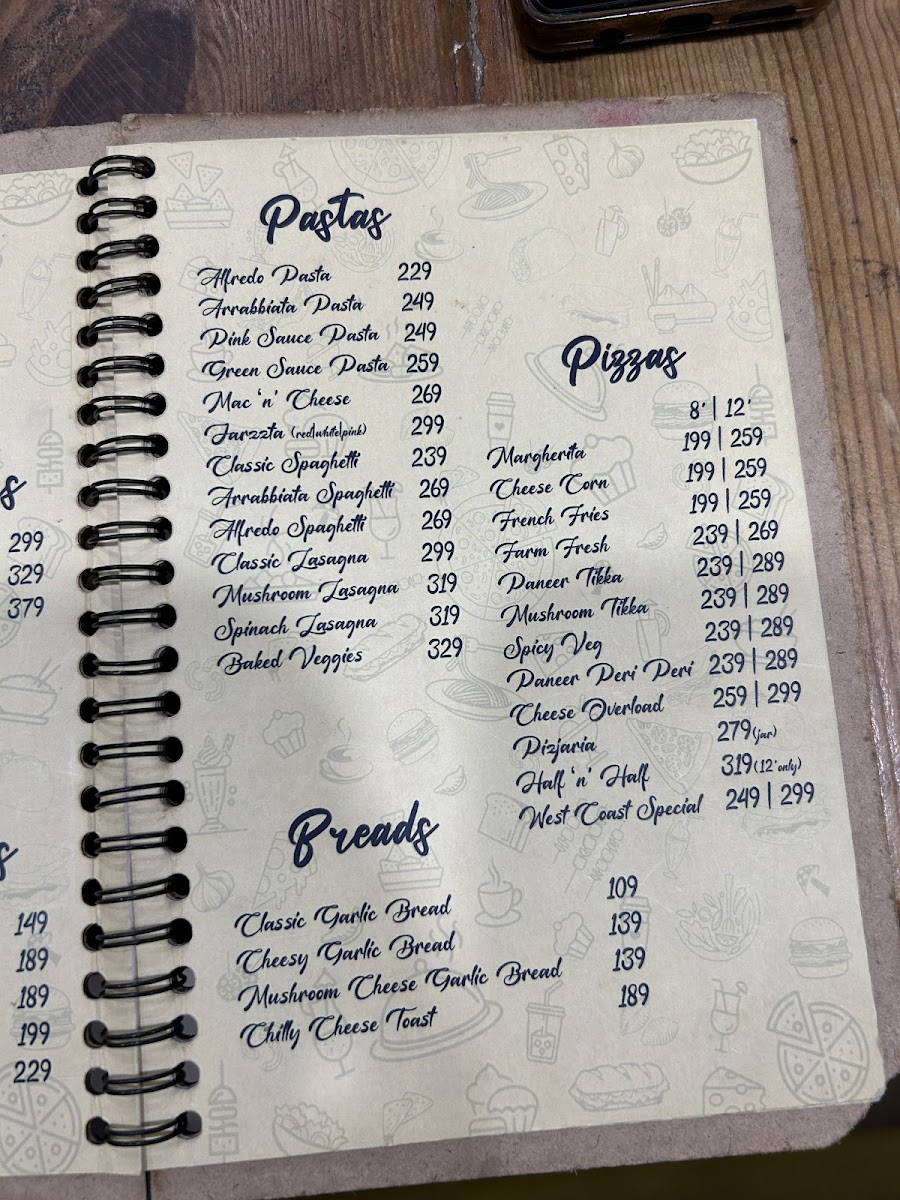 299
329
379
149
189
189
199
229
Pastas
Alfredo Pasta 229
Arrabbiata Pasta 249
Pink Sauce Pasta 249
Green Sauce Pasta 259
Mac 'n' Cheese 269
Jarzzta (red|white|pink) 299
Classic Spaghetti 239
Arrabbiata Spaghetti 269
Alfredo Spaghetti 269
Classic Lasagna 299
Mushroom Lasagna 319
Spinach Lasagna 319
Baked Veggies 329
Pizzas
8' | 12'
Margherita 199 | 259
Cheese Corn 199 | 259
French Fries 199 | 259
Farm Fresh 239 | 269
Paneer Tikka 239 | 289
Mushroom Tikka 239 | 289
Spicy Veg 239 | 289
Paneer Peri Peri 239 | 289
Cheese Overload 259 | 299
Pizjaria 279 (jar)
Half 'n' Half 319 (12' only)
West Coast Special 249 | 299
Breads
Classic Garlic Bread 109
Cheesy Garlic Bread 139
Mushroom Cheese Garlic Bread 139
Chilly Cheese Toast 189